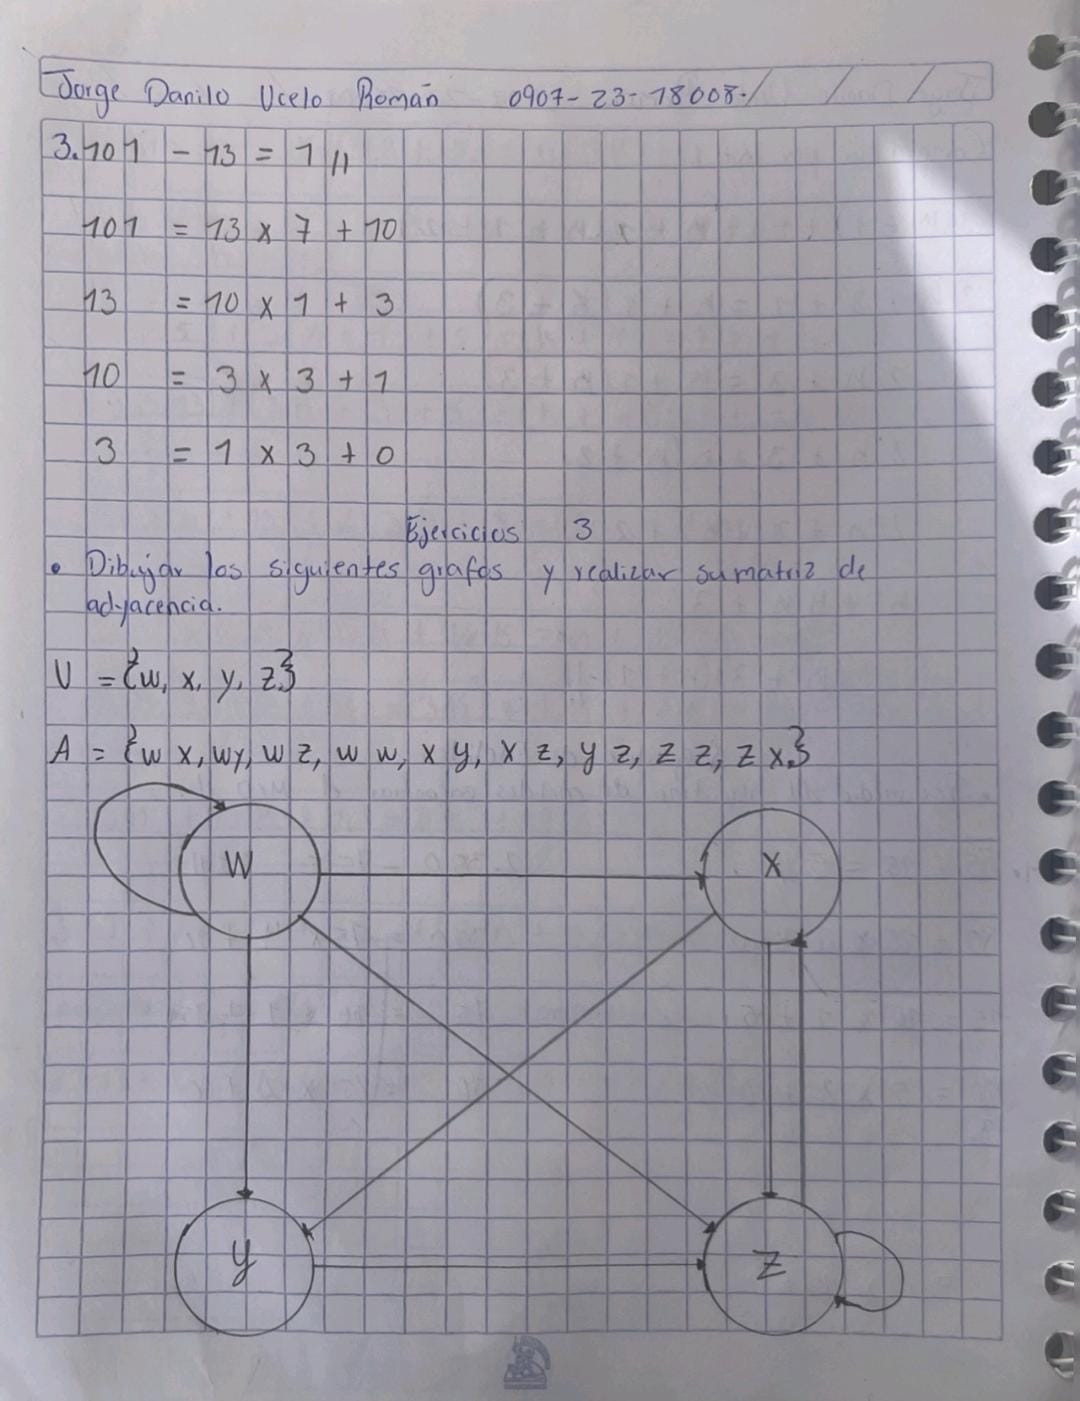 Jorge Danilo Ucelo Román 0907-23-18008.
3. 101 - 13 = 1 //
101 = 13 x 7 + 10
13 = 10 x 1 + 3
10 = 3 x 3 + 1
3 = 1 x 3 + 0
Ejercicios 3
• Dibujar los siguientes grafos y realizar su matriz de
adyacencia.
V = {w, x, y, z}
A = {w x, wy, w z, w w, x y, x z, y z, z z, z x}
W X
y z